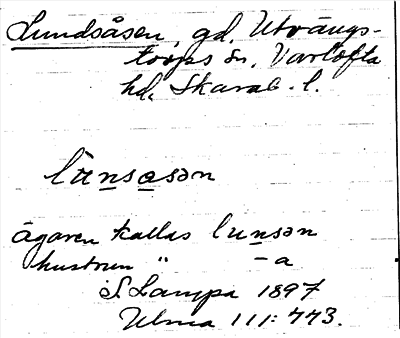 Lundsåsen, gd. Utvängs-
torps sn, Vartofta
hd, Skarab. l.
lūnsasən
ägaren kallas lunsən
hustrun " -a
S. Lampa 1897
Ulma 111:443.